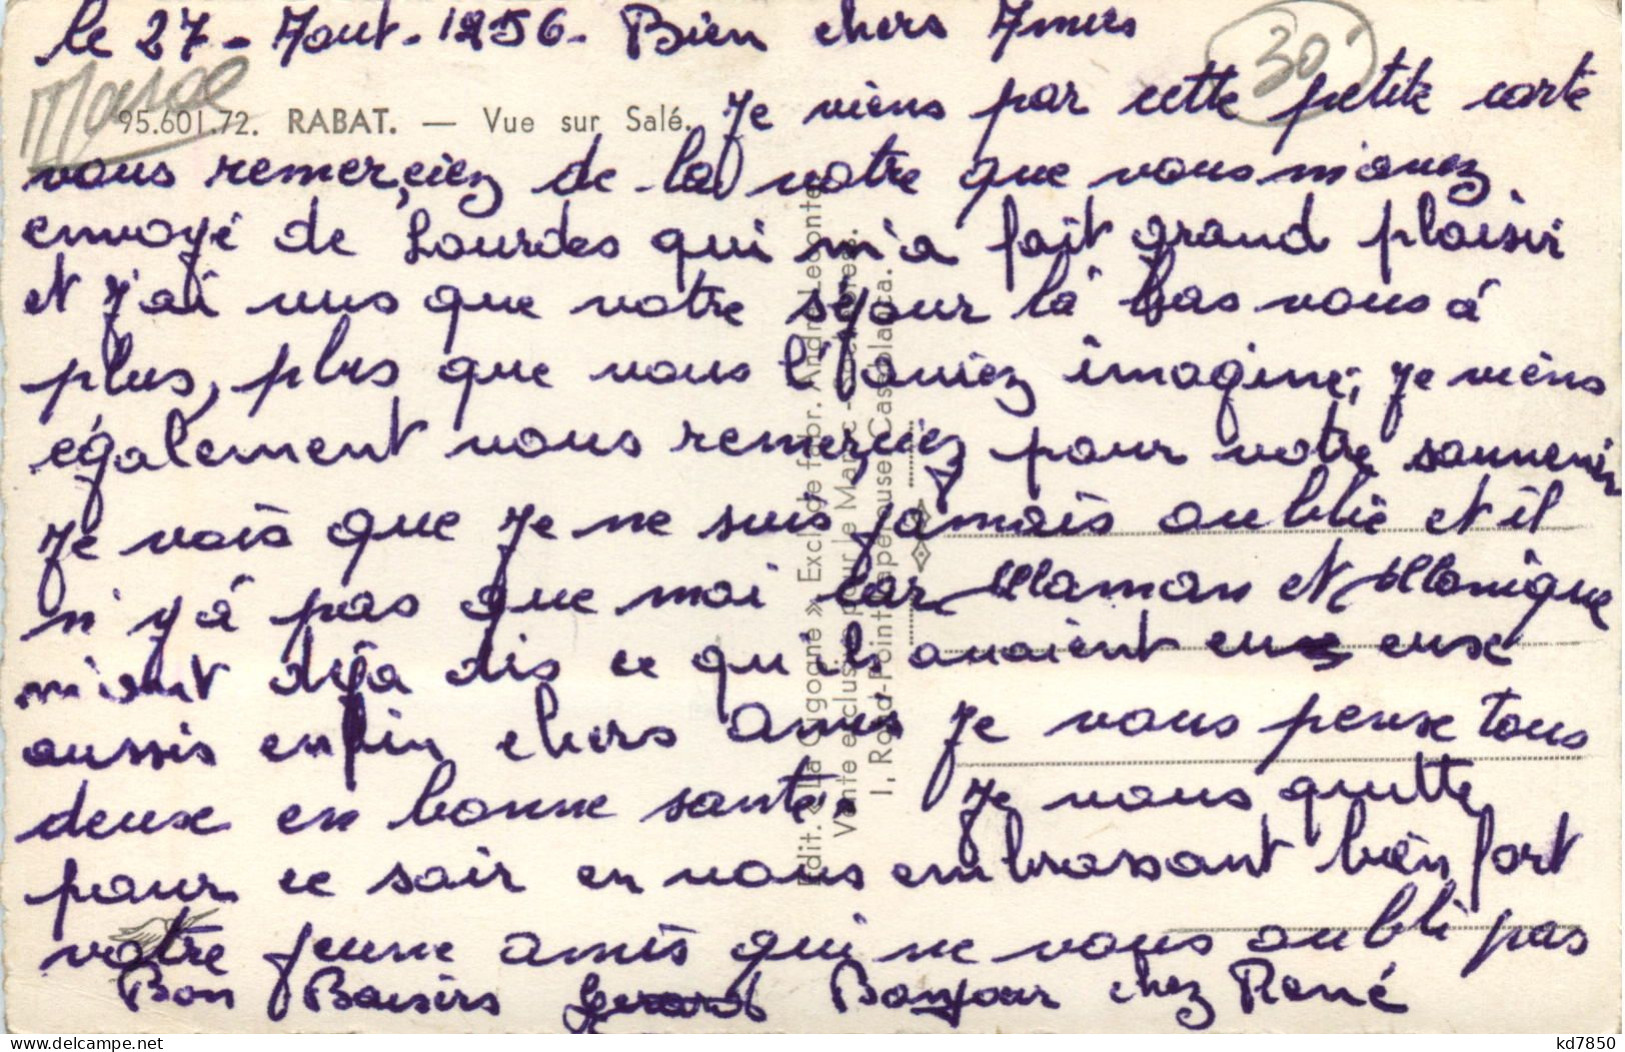 le 27 - Aout - 1956 - Bien chers Amis
30
Maroc
95.601.72. RABAT. — Vue sur Salé.
Je viens par cette petite carte
vous remerçiez de la votre que vous m'avez
envoyé de Lourdes qui m'a fait grand plaisir
et j'ai vus que votre séjour là bas vous à
plus, plus que vous l'aviez imaginé, je viens
également vous remerçiez pour votre souvenir
je vois que je ne suis jamais oublié et il
n'y à pas que moi car Maman et Monique
m'ont déja dis ce qu'ils avaient eus eux
aussis enfin chers Amis je vous pense tous
deux en bonne santé. Je vous quitte
pour ce soir en vous embrassant bien fort
votre jeune amis qui ne vous oubli pas
Bon Baisers Gerard Bonjour chez René
Edit. « La Cigogne » Excl. de fabr. André Leconte
Vente exclusive pour le Maroc -
1, Rond-Point Lapeyrouse, Casablanca.
delcampe.net
kd7850